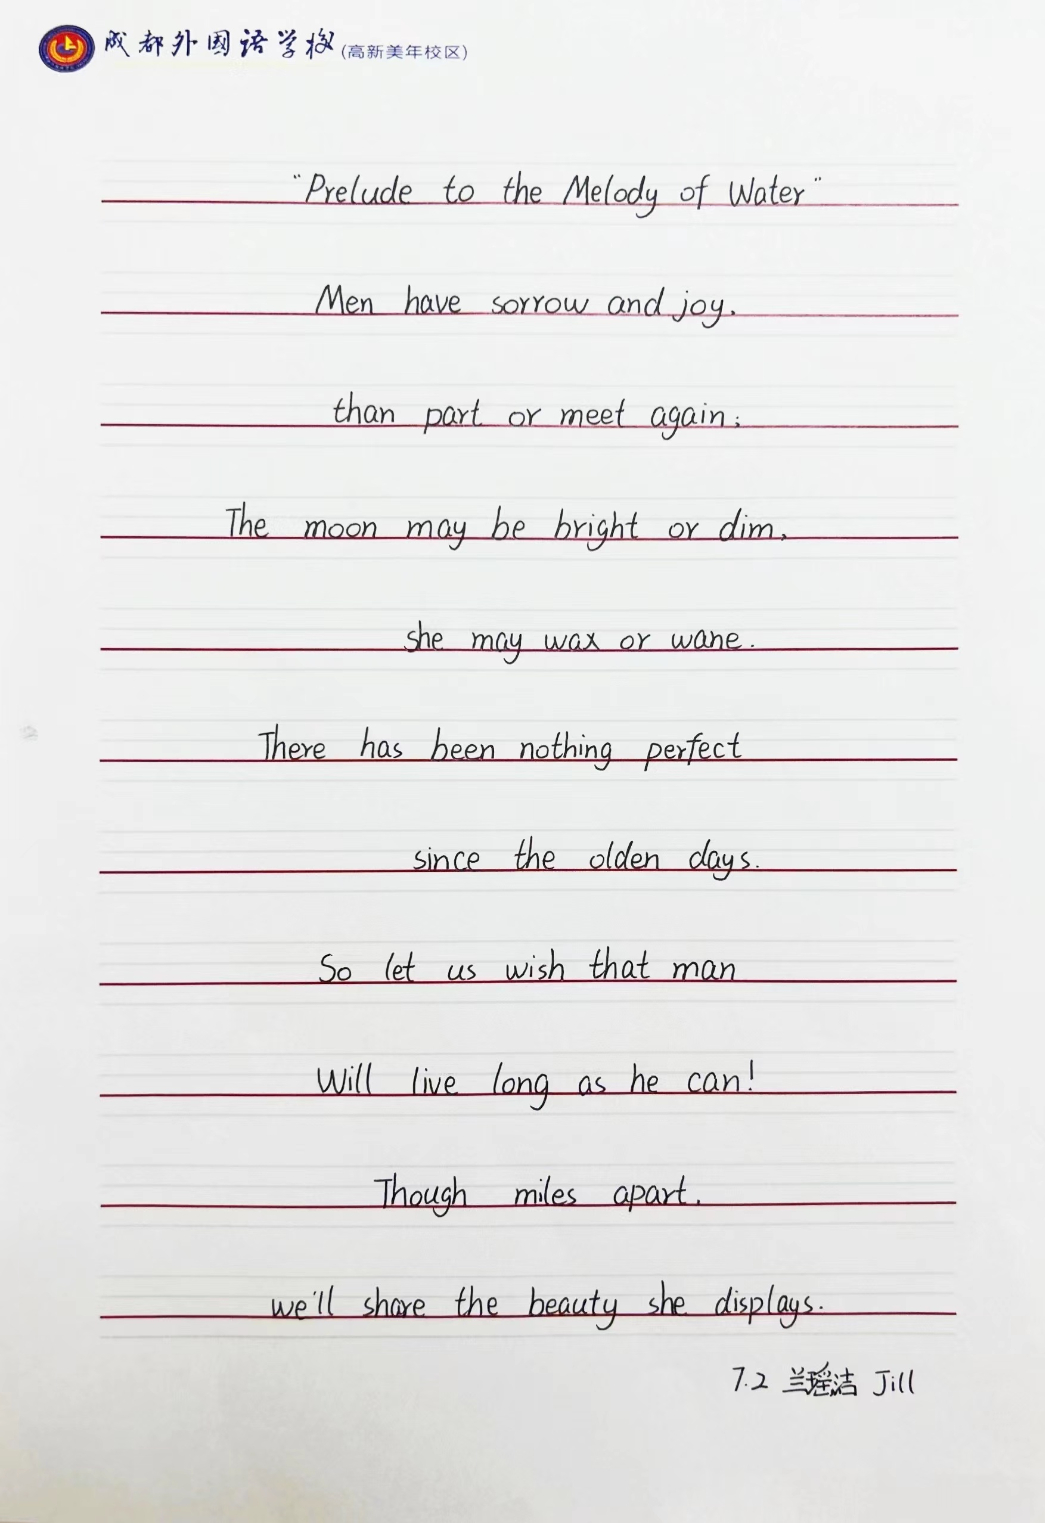 成都外国语学校(高新美年校区)
"Prelude to the Melody of Water"
Men have sorrow and joy.
than part or meet again;
The moon may be bright or dim,
she may wax or wane.
There has been nothing perfect
since the olden days.
So let us wish that man
Will live long as he can!
Though miles apart.
we'll share the beauty she displays.
7.2 兰瑶洁 Jill